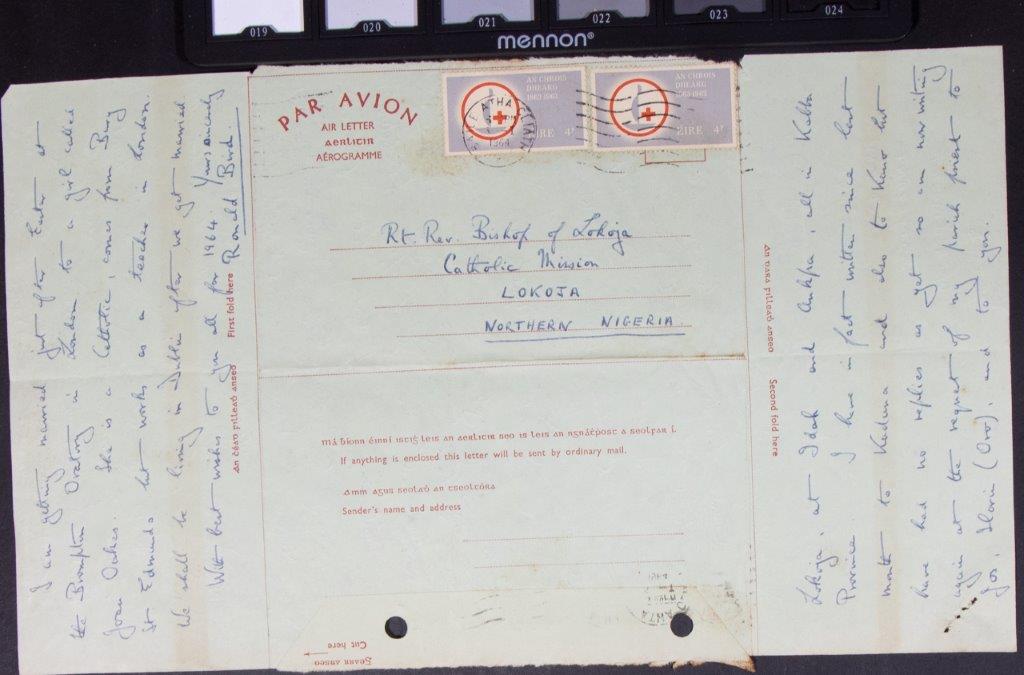 019 020 021 022 023 024
mennon®
PAR AVION
AIR LETTER
aerlitir
AÉROGRAMME
AN CHROIS
DHEARG
1863-1963
ÉIRE 4ᴾ
AN CHROIS
DHEARG
1863-1963
ÉIRE 4ᴾ
BAILE ÁTHA CLIATH
1964
Rt. Rev. Bishop of Lokoja
Catholic Mission
LOKOJA
NORTHERN NIGERIA
má bíonn éinní istiġ leis an aerlitir seo is leis an ngnáṫṗost a seolfar í.
If anything is enclosed this letter will be sent by ordinary mail.
ainm agus seolaḋ an tseoltóra
Sender's name and address
Cut here
gearr anseo
First fold here
an céad filleaḋ anseo
an dara filleaḋ anseo
Second fold here
I am getting married just after Easter at
the Brompton Oratory in London to a girl called
Joan Oakes. She is a Catholic, comes from Bury
St Edmunds but works as a teacher in London.
We shall be living in Dublin after we get married
With best wishes to you all for 1964. Yours sincerely
Ronald Bird.
Lokoja, at Idah and Ankpa, all in Kabba
Province I have in fact written since last
month to Kaduna and also to Kano but
have had no replies as yet so am now writing
again at the request of my parish priest to
Jos, Ilorin (Oro), and to you.